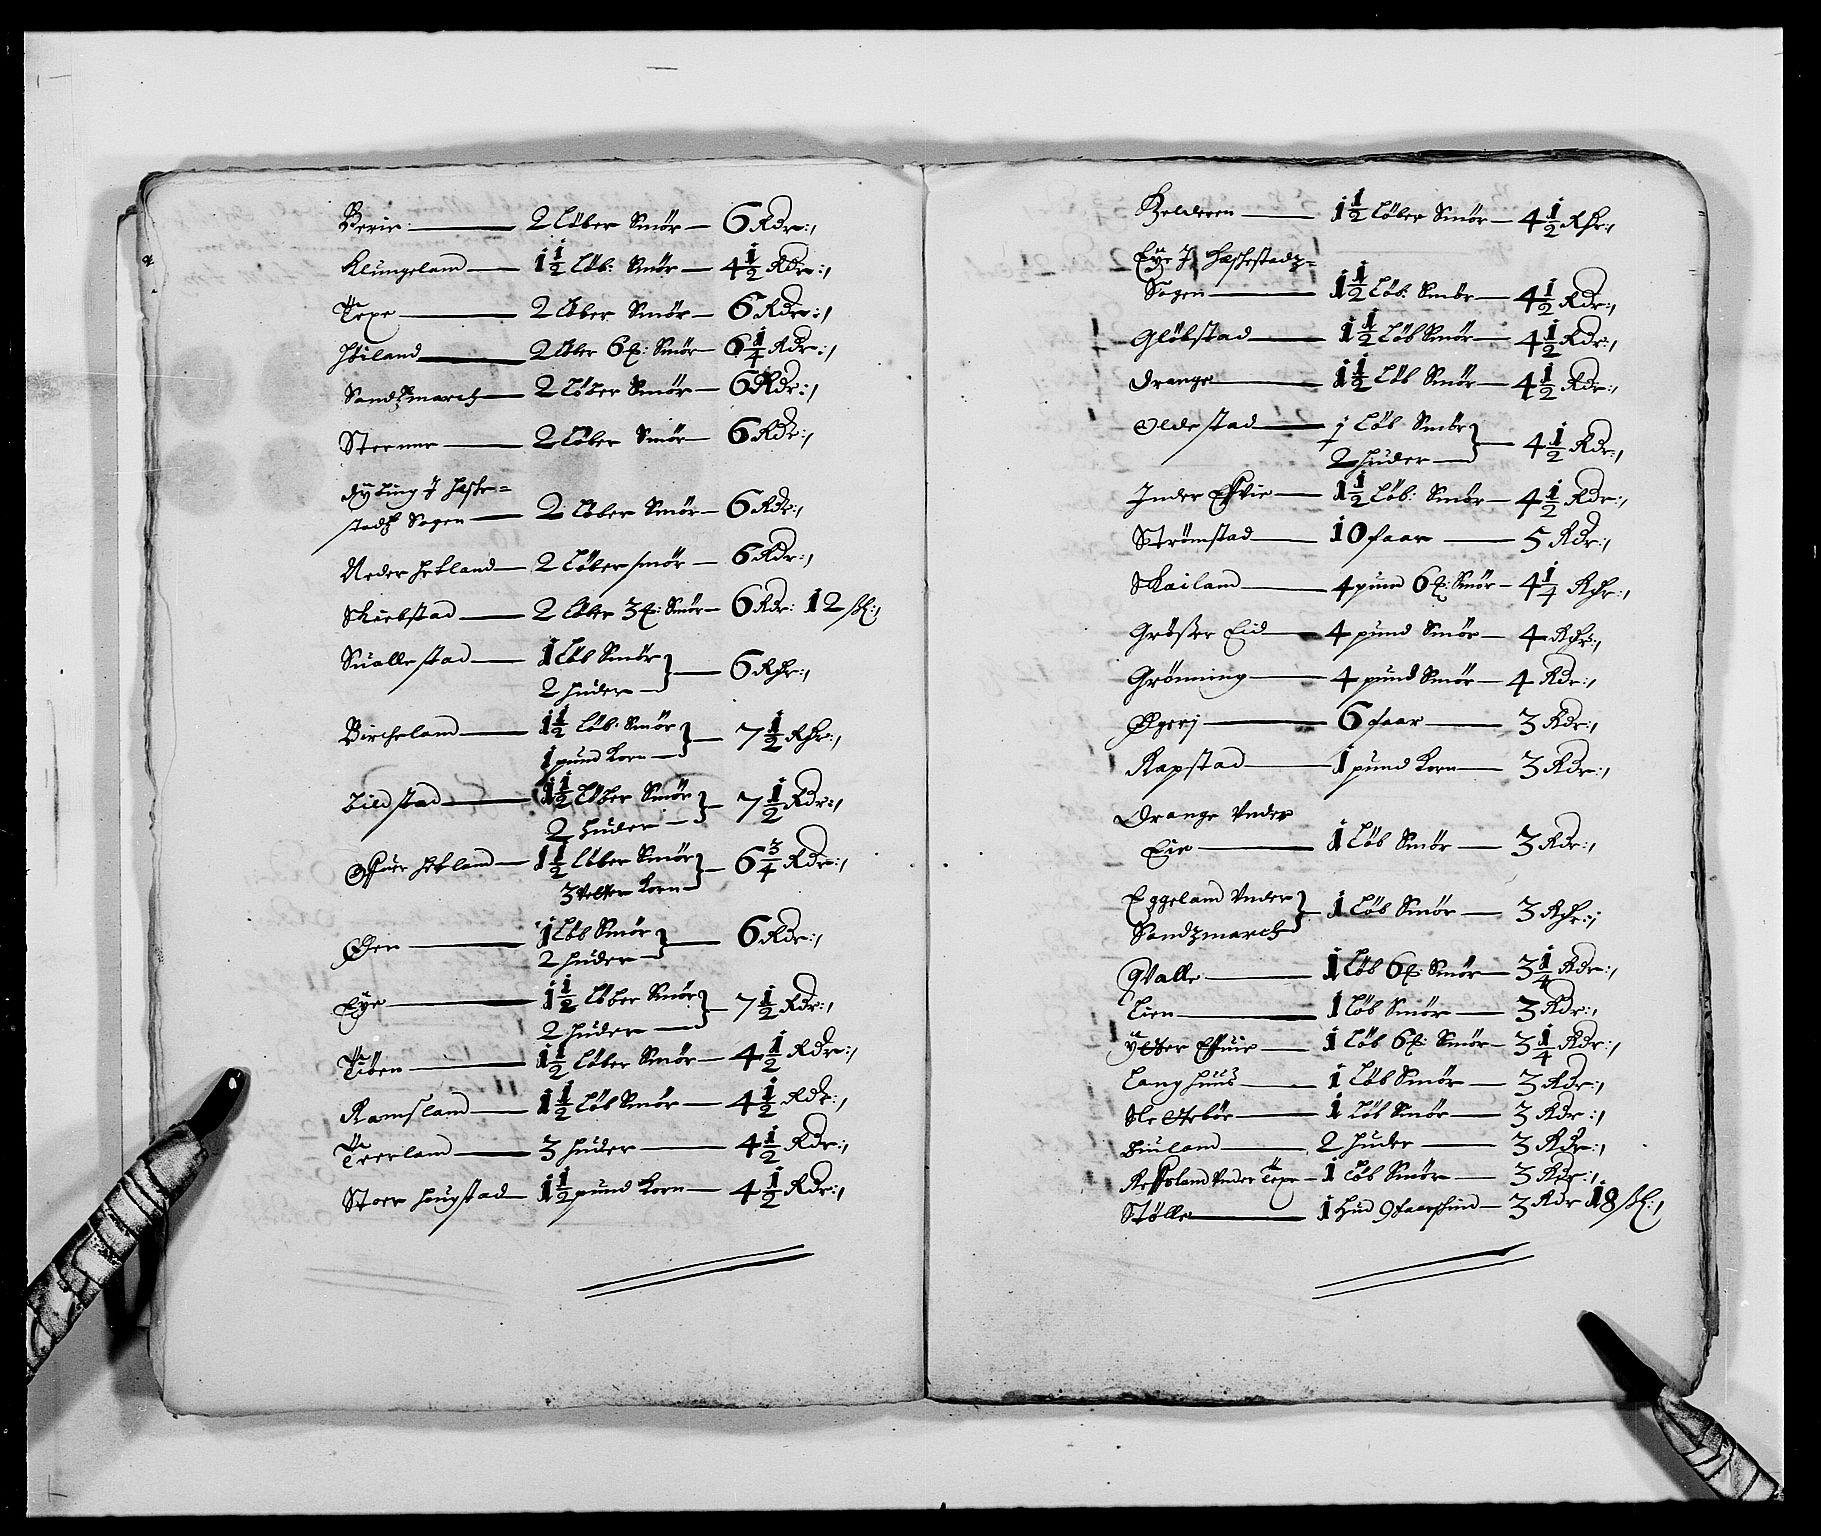 Berie — 2 Löber Smör — 6 Rdr:,
Klungeland — 1½ Löb: Smör — 4½ Rdr:,
Texe — 2 Löber Smör — 6 Rdr:,
Hiland — 2 Löber 6 : Smör — 6¼ Rdr:,
Sandtzmarch — 2 Löber Smör — 6 Rdr:,
Steenne — 2 Löber Smör — 6 Rdr:,
Dÿbing J Heske=
stadtz Sogen — 2 Löber Smör — 6 Rdr:,
Neder Hetland — 2 Löber smör — 6 Rdr:,
Skiebstad — 2 Löber 3 : Smör — 6 Rdr: 12 sk:,
Suallestad — 1 Löb Smör
2 Huder — 6 Rdr:,
Bircheland — 1½ Löb: Smör
1 pund Korn — 7½ Rdr:,
Lildstad — 1½ Löber Smör
2 Huder — 7½ Rdr:,
Ofuer Hetland — 1½ Löber Smör
3 Vetter Korn — 6¾ Rdr:,
Øen — 1 Löb Smör
2 Huder — 6 Rdr:,
Eÿe — 1½ Löber Smör
2 Huder — 7½ Rdr:,
Tiöen — 1½ Löber Smör — 4½ Rdr:,
Ramsland — 1½ Löb Smör — 4½ Rdr:,
Teerland — 3 Huder — 4½ Rdr:,
Stoer Haugstad — 1½ pund Korn — 4½ Rdr:,
Helderen — 1½ Löber Smör — 4½ Rdr:,
Eÿe J Heskestadz=
Sogen — 1½ Löb: Smör — 4½ Rdr:,
Glöbstad — 1½ Löb Smör — 4½ Rdr:,
Drange — 1½ Löb Smör — 4½ Rdr:,
Oldestad — 1 Löb Smör
2 Huder — 4½ Rdr:,
Inder Essuie — 1½ Löb: Smör — 4½ Rdr:,
Strømstad — 10 faar — 5 Rdr:,
Skailand — 4 pund 6 : Smör — 4¼ Rdr:,
Grösser Eid — 4 pund Smör — 4 Rdr:,
Grønning — 4 pund Smör — 4 Rdr:,
Øgrej — 6 faar — 3 Rdr:,
Rapstad — 1 pund Korn — 3 Rdr:,
Drange Vnder
Eie — 1 Löb Smör — 3 Rdr:,
Eggeland Vnder
Sandzmarch — 1 Löb Smör — 3 Rdr:,
Qvalle — 1 Löb 6 : Smör — 3¼ Rdr:,
Lien — 1 Löb Smör — 3 Rdr:,
ÿtter Essuie — 1 Löb 6 : Smör — 3¼ Rdr:,
Langhuus — 1 Löb Smör — 3 Rdr:,
Sletteböe — 1 Löb Smör — 3 Rdr:,
Huiland — 2 Huder — 3 Rdr:,
Refsland Vnder Texe — 1 Löb Smör — 3 Rdr:,
Stølle — 1 Hud 9 faarskind — 3 Rdr 18 sk:,